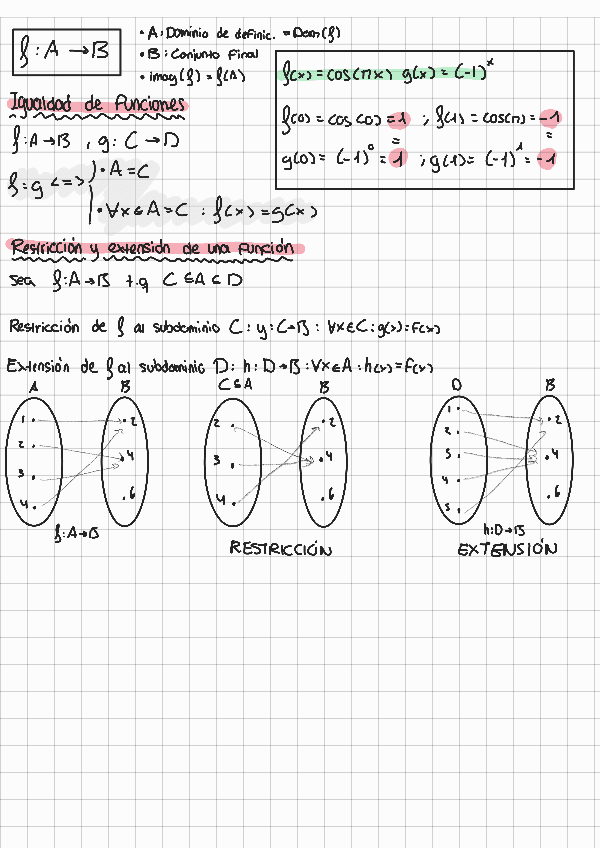 f : A → B
• A : Dominio de definic. = Dom(f)
• B : Conjunto Final
• imag(f) = f(A)
f(x) = cos(πx) g(x) = (-1)^x
f(0) = cos(0) = 1 ; f(1) = cos(π) = -1
= =
g(0) = (-1)^0 = 1 ; g(1) = (-1)^1 = -1
Igualdad de Funciones
f : A → B , g : C → D
f = g <=>
• A = C
• ∀x ∈ A = C : f(x) = g(x)
Restricción y extensión de una función
Sea f : A → B t.q C ⊆ A ⊆ D
Restricción de f al subdominio C : g : C → B : ∀x ∈ C : g(x) = F(x)
Extensión de f al subdominio D : h : D → B : ∀x ∈ A : h(x) = F(x)
A B C ⊆ A B D B
1 2
2 4
3 6
4
f : A → B
2 2
3 4
4 6
RESTRICCIÓN
1 2
2 4
3 6
4
5
h : D → B
EXTENSIÓN